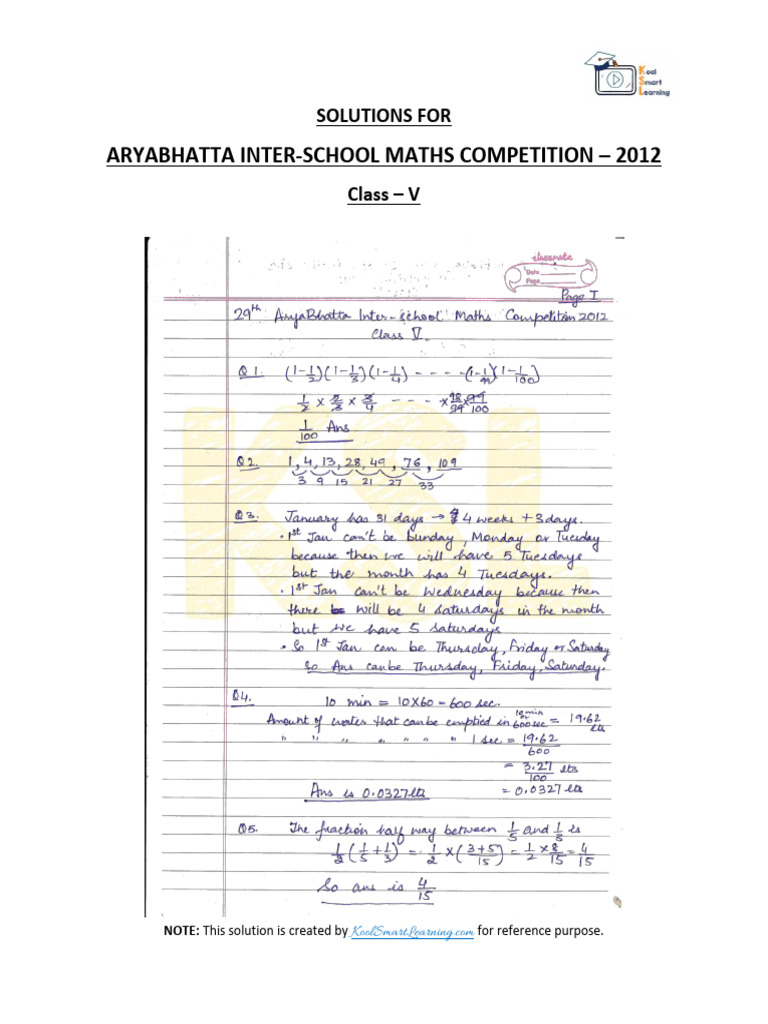 Kool
Smart
Learning
SOLUTIONS FOR
ARYABHATTA INTER-SCHOOL MATHS COMPETITION – 2012
Class – V
classmate
Date
Page
Page I
29th AryaBhatta Inter-school Maths Competition 2012
Class V.
Q1. (1-1/2)(1-1/3)(1-1/4) - - - - -(1-1/99)(1-1/100)
1/2 × 2/3 × 3/4 - - - × 98/99 × 99/100
1/100 Ans
Q2. 1, 4, 13, 28, 49, 76, 109
3 9 15 21 27 33
Q3. January has 31 days → 4 weeks + 3 days.
• 1st Jan can't be Sunday, Monday or Tuesday
because then we will have 5 Tuesdays
but the month has 4 Tuesdays.
• 1st Jan can't be Wednesday because then
there will be 4 saturdays in the month
but we have 5 saturdays
• So 1st Jan can be Thursday, Friday or Saturday
So Ans can be Thursday, Friday, Saturday.
Q4. 10 min = 10×60 = 600 sec.
Amount of water that can be emptied in 10 min or 600 sec = 19.62 lts
" " " " " " " 1 sec = 19.62/600
= 3.27/100 lts
Ans is 0.0327 lts = 0.0327 lts
Q5. The fraction half way between 1/5 and 1/3 is
1/2 (1/5 + 1/3) = 1/2 × (3+5/15) = 1/2 × 8/15 = 4/15
So ans is 4/15
KSL
NOTE: This solution is created by KoolSmartLearning.com for reference purpose.